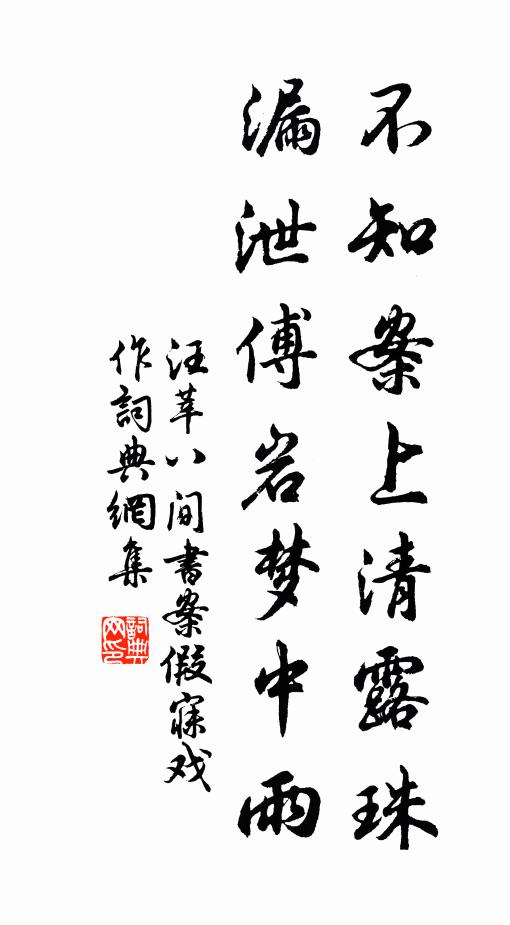 不知案上清露珠
漏泄傅岩梦中雨
汪莘八间書案假寐戏
作詞典網集
詞典网印